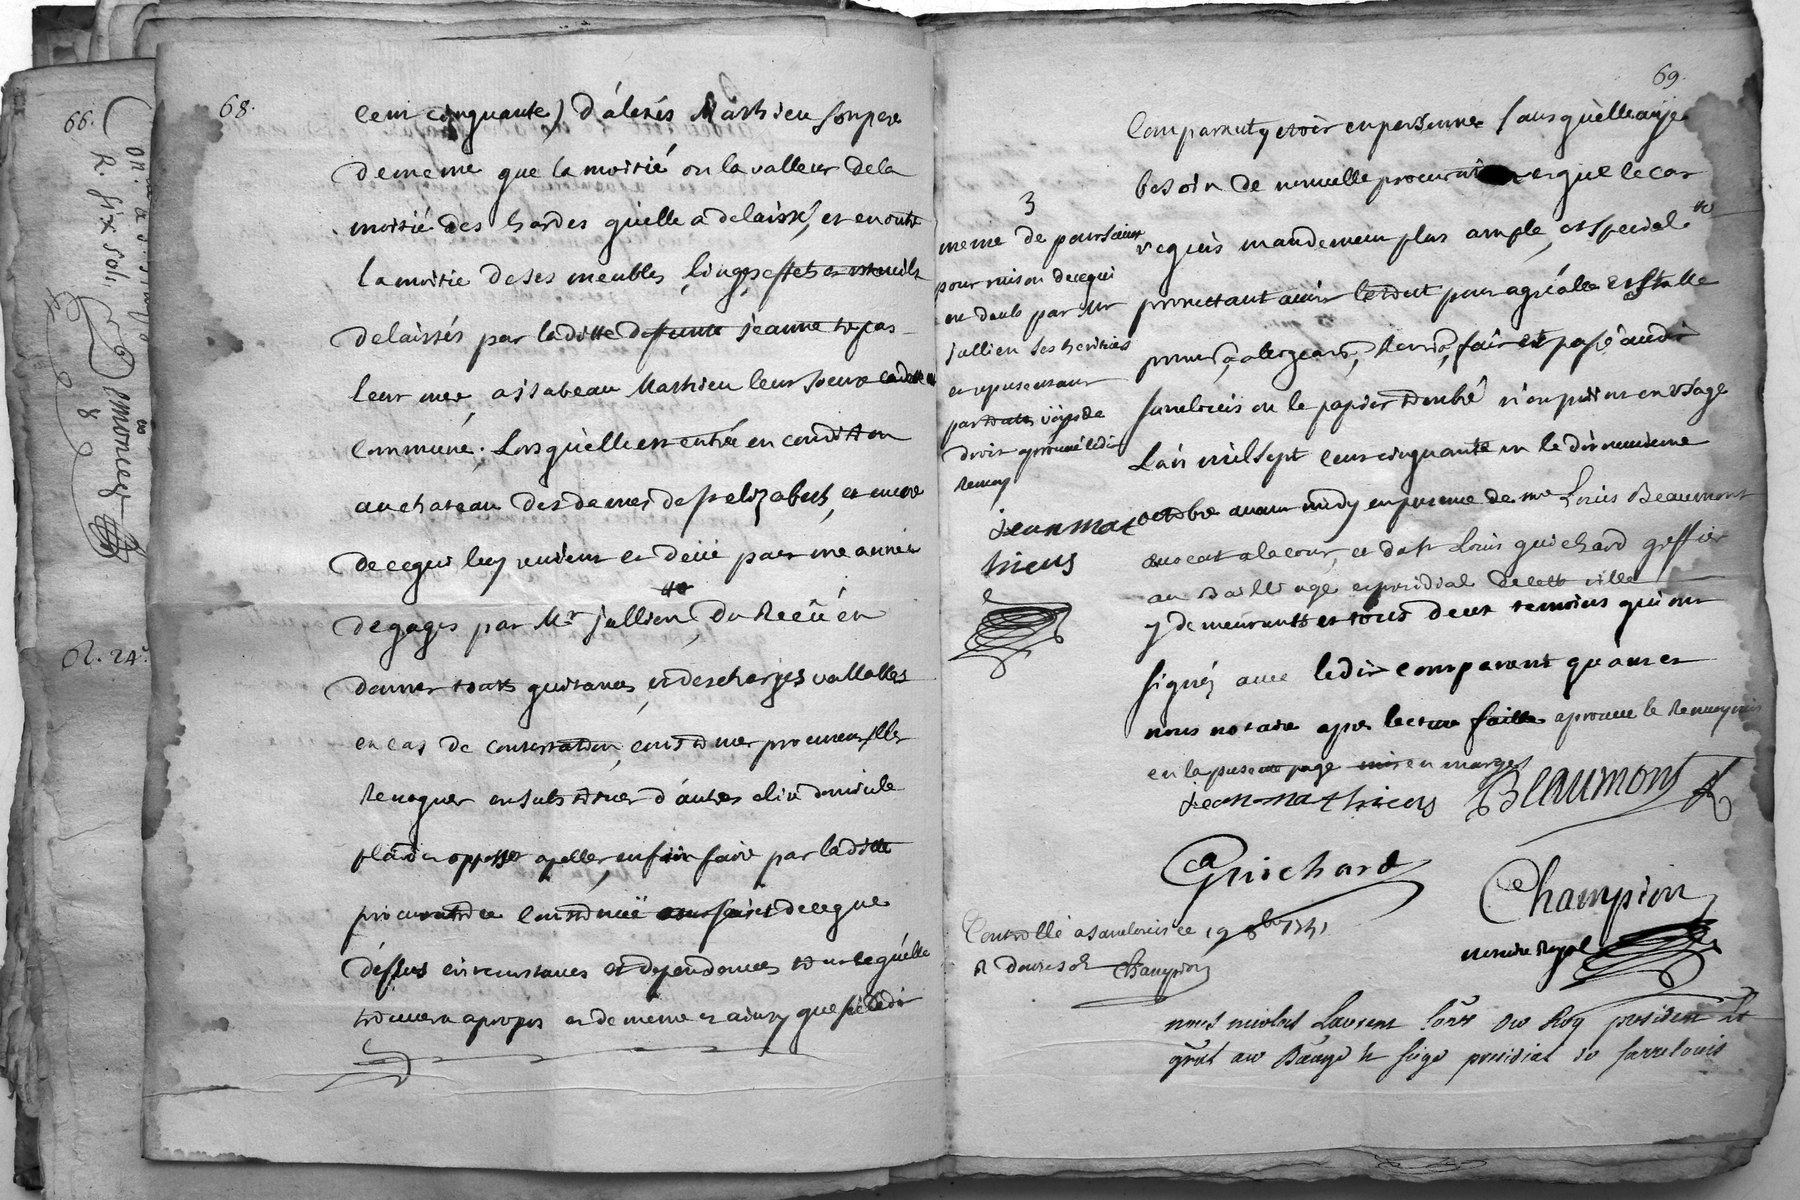 66.
68.
cent cinquante) d'alexés Mathieu son pere
de meme que la moitié ou la valleur de la
moitié des hardes qu'elle a delaissé, et en outre
la moitié de ses meubles, linges effets et ustensils
delaissés par laditte defunte jeanne
leur mere, a jsabeau Mathieu leur soeur
commune. Lorsqu'elle est entrée en condition
au chateau des dames de st elizabeth, et encore
de ce qui luy revient et deüe pour une année
de gages par Mr jullien, du Reçû en
donner touts quitances, et descharges vallables
en cas de contestation, constituer procureur, iller
revoquer en substituer d'autres elire domicile
plaider opposer apeller, enfin faire par laditte
procuratrice constituée au sujet de ce que
dessus circonstances et dependences tout ce qu'elle
trouvera apropos et de meme et ainsy que si ledit
69.
comparant y etoit en personne sans qu'elle aije
besoin de nouvelle procuration et que le cas
requis mandement plus ample, et special
promettant avoir le tout pour agréable et stable
fait et passé audit
sarrelouis ou le papier timbré n'en point en usage
L'an mil sept cent cinquante un le dix neuvieme
octobre avant midy en presence de me Louis Beaumont
avocat a la cour, et de sr Louis guichard greffier
au Bailliage et presidial de cette ville
y demeurants et tous deux temoins qui ont
signéz avec ledit comparant qu'avec
nous notaire apres lecture faitte aprouvé le Renvoy mis
en la presente page mis en marge
3
meme de poursuivre
pour raison de ce qui
est deub par Mr
jullien ses heritiers
et representant
par touts voijes de
droit aprouvé ledit
Renvoy
jean mat
hieus
jean mathieus
Beaumont
Guichard
Champion
notaire Royal
Controllé a sarrelouis ce 19 8bre 1751
R douze sols Champion
nous nicolas Laurent Conr du Roy president Lt
gnal au Bauge et siege presidial de sarrelouis
R. six sols
R. 24s.